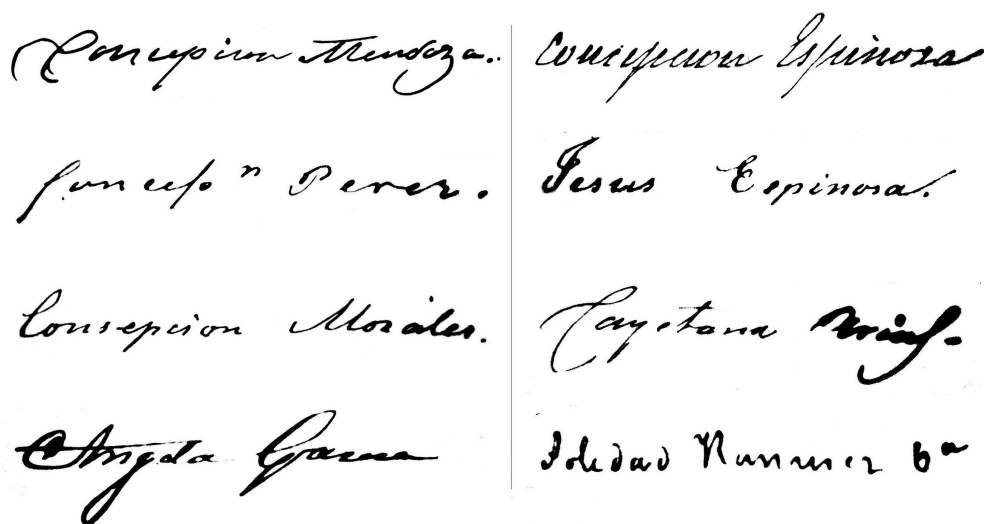 Concepcion Mendoza.
Concepn Perez.
Consepcion Morales.
Angela Garcia
Concepcion Espinosa
Jesus Espinosa.
Cayetana
Soledad 6a